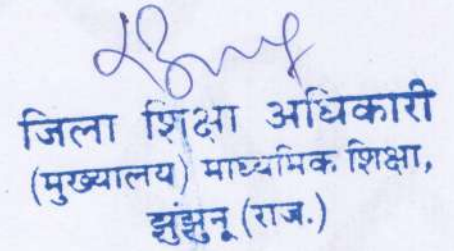 जिला शिक्षा अधिकारी
(मुख्यालय) माध्यमिक शिक्षा,
झुंझुनू (राज.)